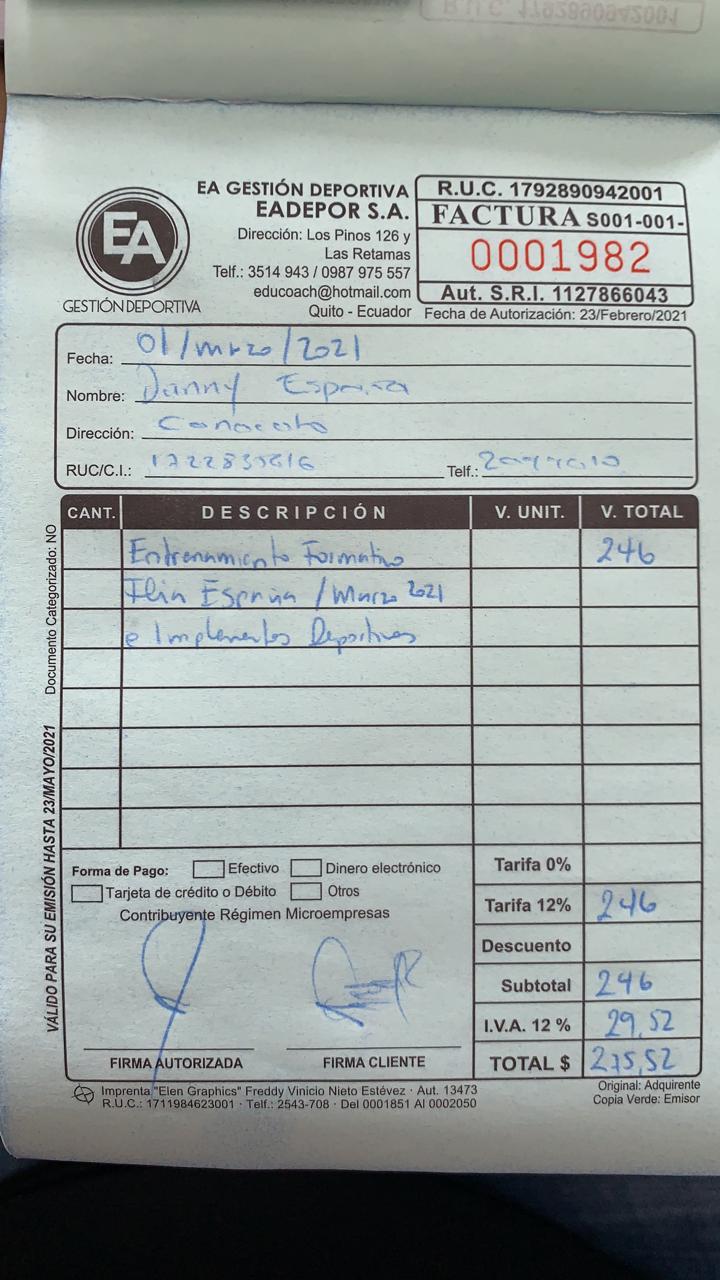 R.U.C. 1792890942001
EA
GESTIÓN DEPORTIVA
EA GESTIÓN DEPORTIVA
EADEPOR S.A.
Dirección: Los Pinos 126 y
Las Retamas
Telf.: 3514 943 / 0987 975 557
educoach@hotmail.com
Quito - Ecuador
R.U.C. 1792890942001
FACTURA S001-001-
0001982
Aut. S.R.I. 1127866043
Fecha de Autorización: 23/Febrero/2021
Fecha: 01/marzo/2021
Nombre: Danny España
Dirección: Conocoto
RUC/C.I.:
Telf.:
CANT. DESCRIPCIÓN V. UNIT. V. TOTAL
Entrenamiento Formativo 246
España / Marzo 2021
e Implementos Deportivos
Documento Categorizado: NO
VÁLIDO PARA SU EMISIÓN HASTA 23/MAYO/2021
Forma de Pago: Efectivo Dinero electrónico
Tarjeta de crédito o Débito Otros
Contribuyente Régimen Microempresas
Tarifa 0%
Tarifa 12% 246
Descuento
Subtotal 246
I.V.A. 12 % 29,52
TOTAL $ 275,52
FIRMA AUTORIZADA FIRMA CLIENTE
Imprenta "Elen Graphics" Freddy Vinicio Nieto Estévez · Aut. 13473
R.U.C.: 1711984623001 · Telf.: 2543-708 · Del 0001851 Al 0002050
Original: Adquirente
Copia Verde: Emisor